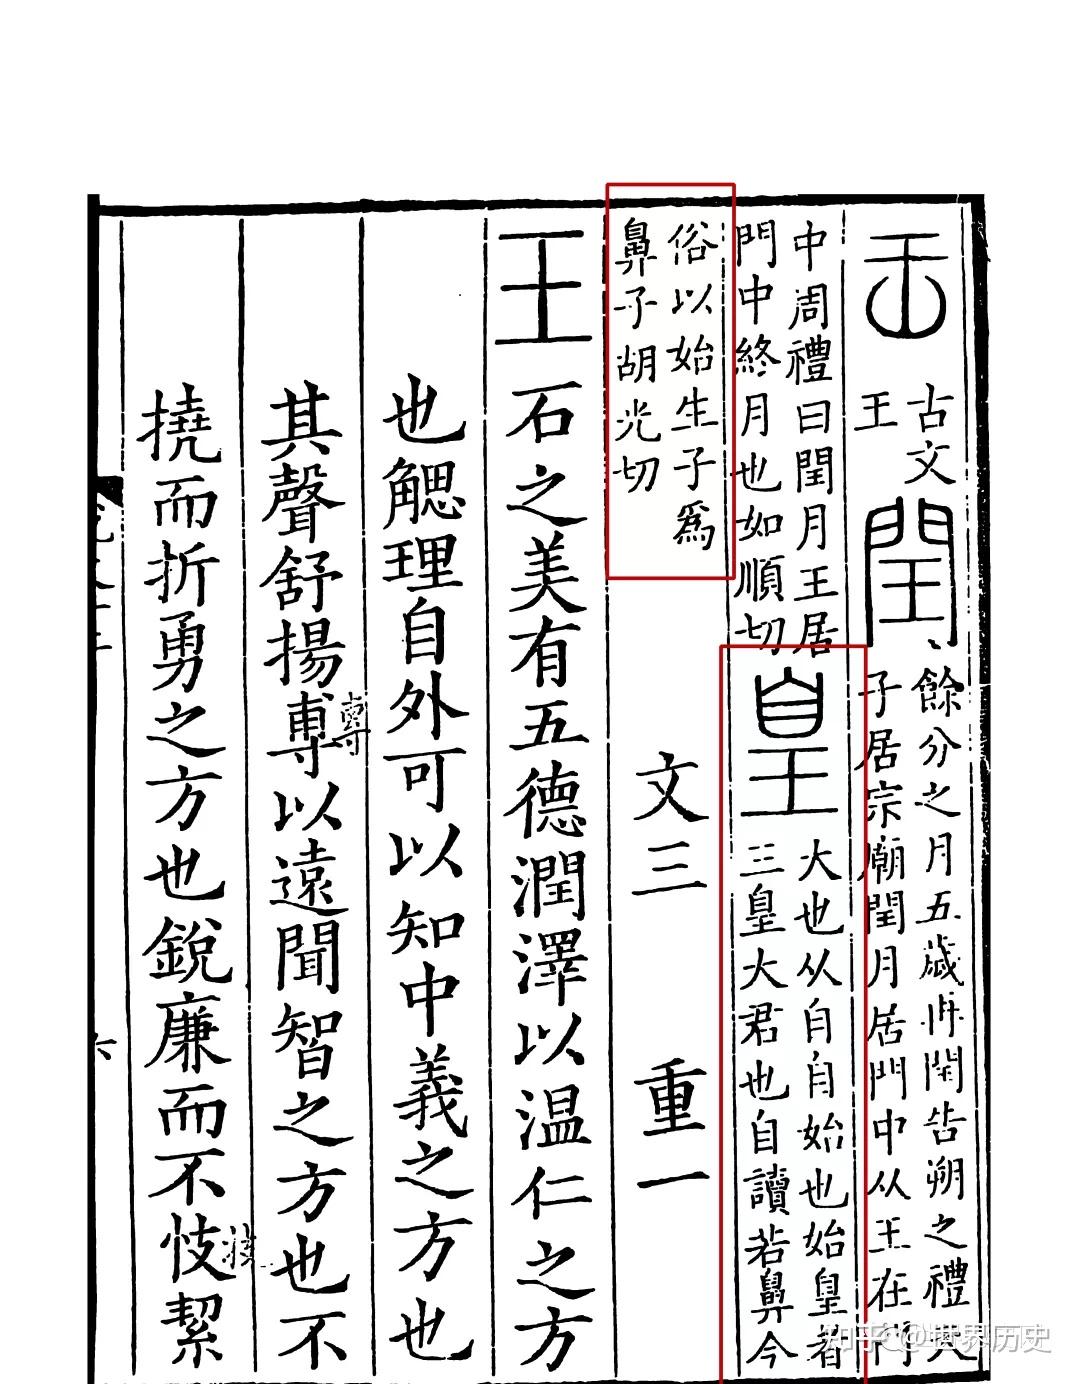 王
古文
王
閏
餘分之月五歲再閏告朔之禮天
子居宗廟閏月居門中从王在門
中周禮曰閏月王居
門中終月也如順切
皇
大也从自自始也始皇者
三皇大君也自讀若鼻今
俗以始生子爲
鼻子胡光切
文三 重一
王 石之美有五德潤澤以温仁之方
也䚡理自外可以知中義之方也
其聲舒揚尃以遠聞智之方也不
專
撓而折勇之方也銳廉而不忮絜
技
六
知乎 @世界历史